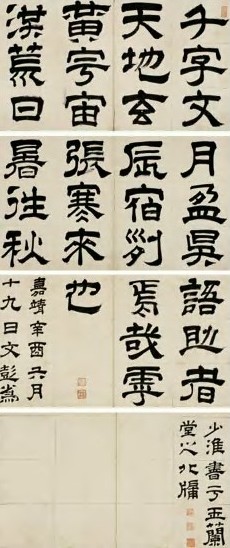 千字文
天地玄
黃宇宙
洪荒日
月盈昃
辰宿列
張寒來
暑往秋
語助者
焉哉乎
也
嘉靖辛酉六月
十九日文彭為
少淮書于玉蘭
堂之北牖